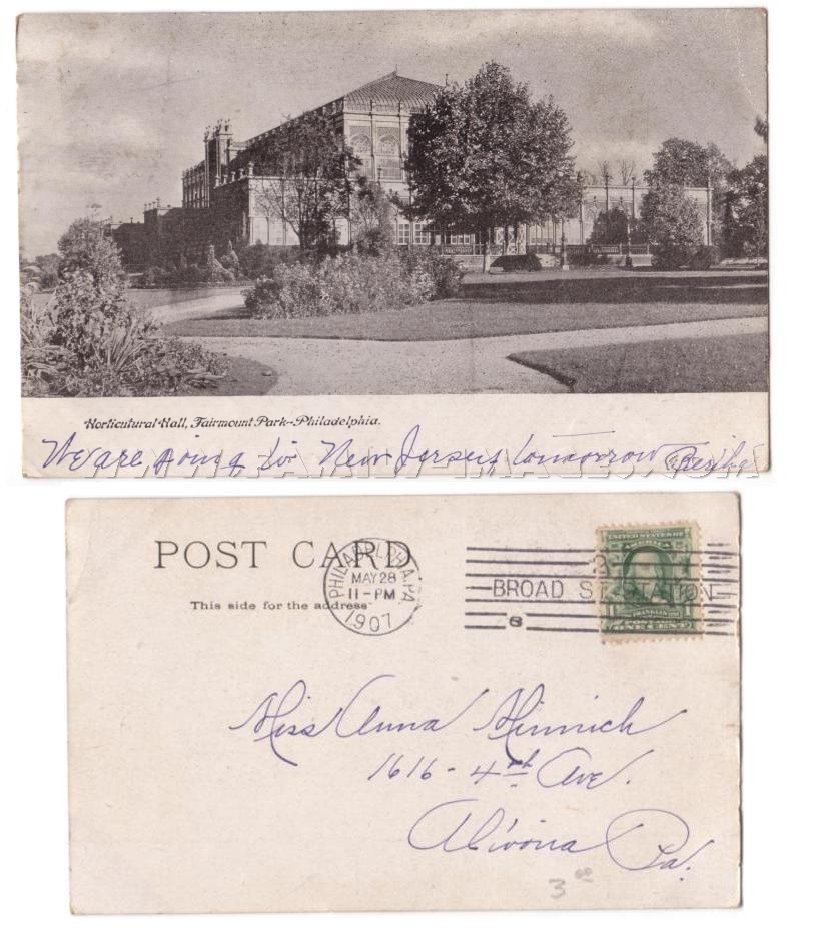 Horticutural Hall, Fairmount Park--Philadelphia.
We are going to New Jersey tomorrow
WWW.FAMILY-IMAGES.COM
POST CARD
This side for the address
PHILADELPHIA, PA.
MAY 28
11-PM
1907
BROAD ST. STATION
6
UNITED STATES OF
AMERICA
FRANKLIN
POSTAGE
ONE CENT
Miss Anna Minnich
1616 - 4th Ave.
Altoona Pa.
3 00